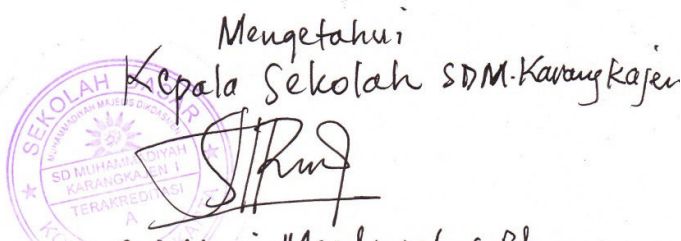 Mengetahui
Kepala Sekolah SDM. Karangkajen
SEKOLAH DASAR
MUHAMMADIYAH MAJELIS DIKDASMEN
SD MUHAMMADIYAH
KARANGKAJEN I
TERAKREDITASI
A